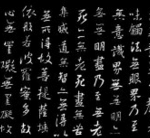 味觸法無眼界乃至
無意識界無無明亦
無無明盡乃至無老
死亦無老死盡無苦
集滅道無智亦無得
以無所得故菩提薩埵
依般若波羅蜜多故
心無罣礙無罣礙故